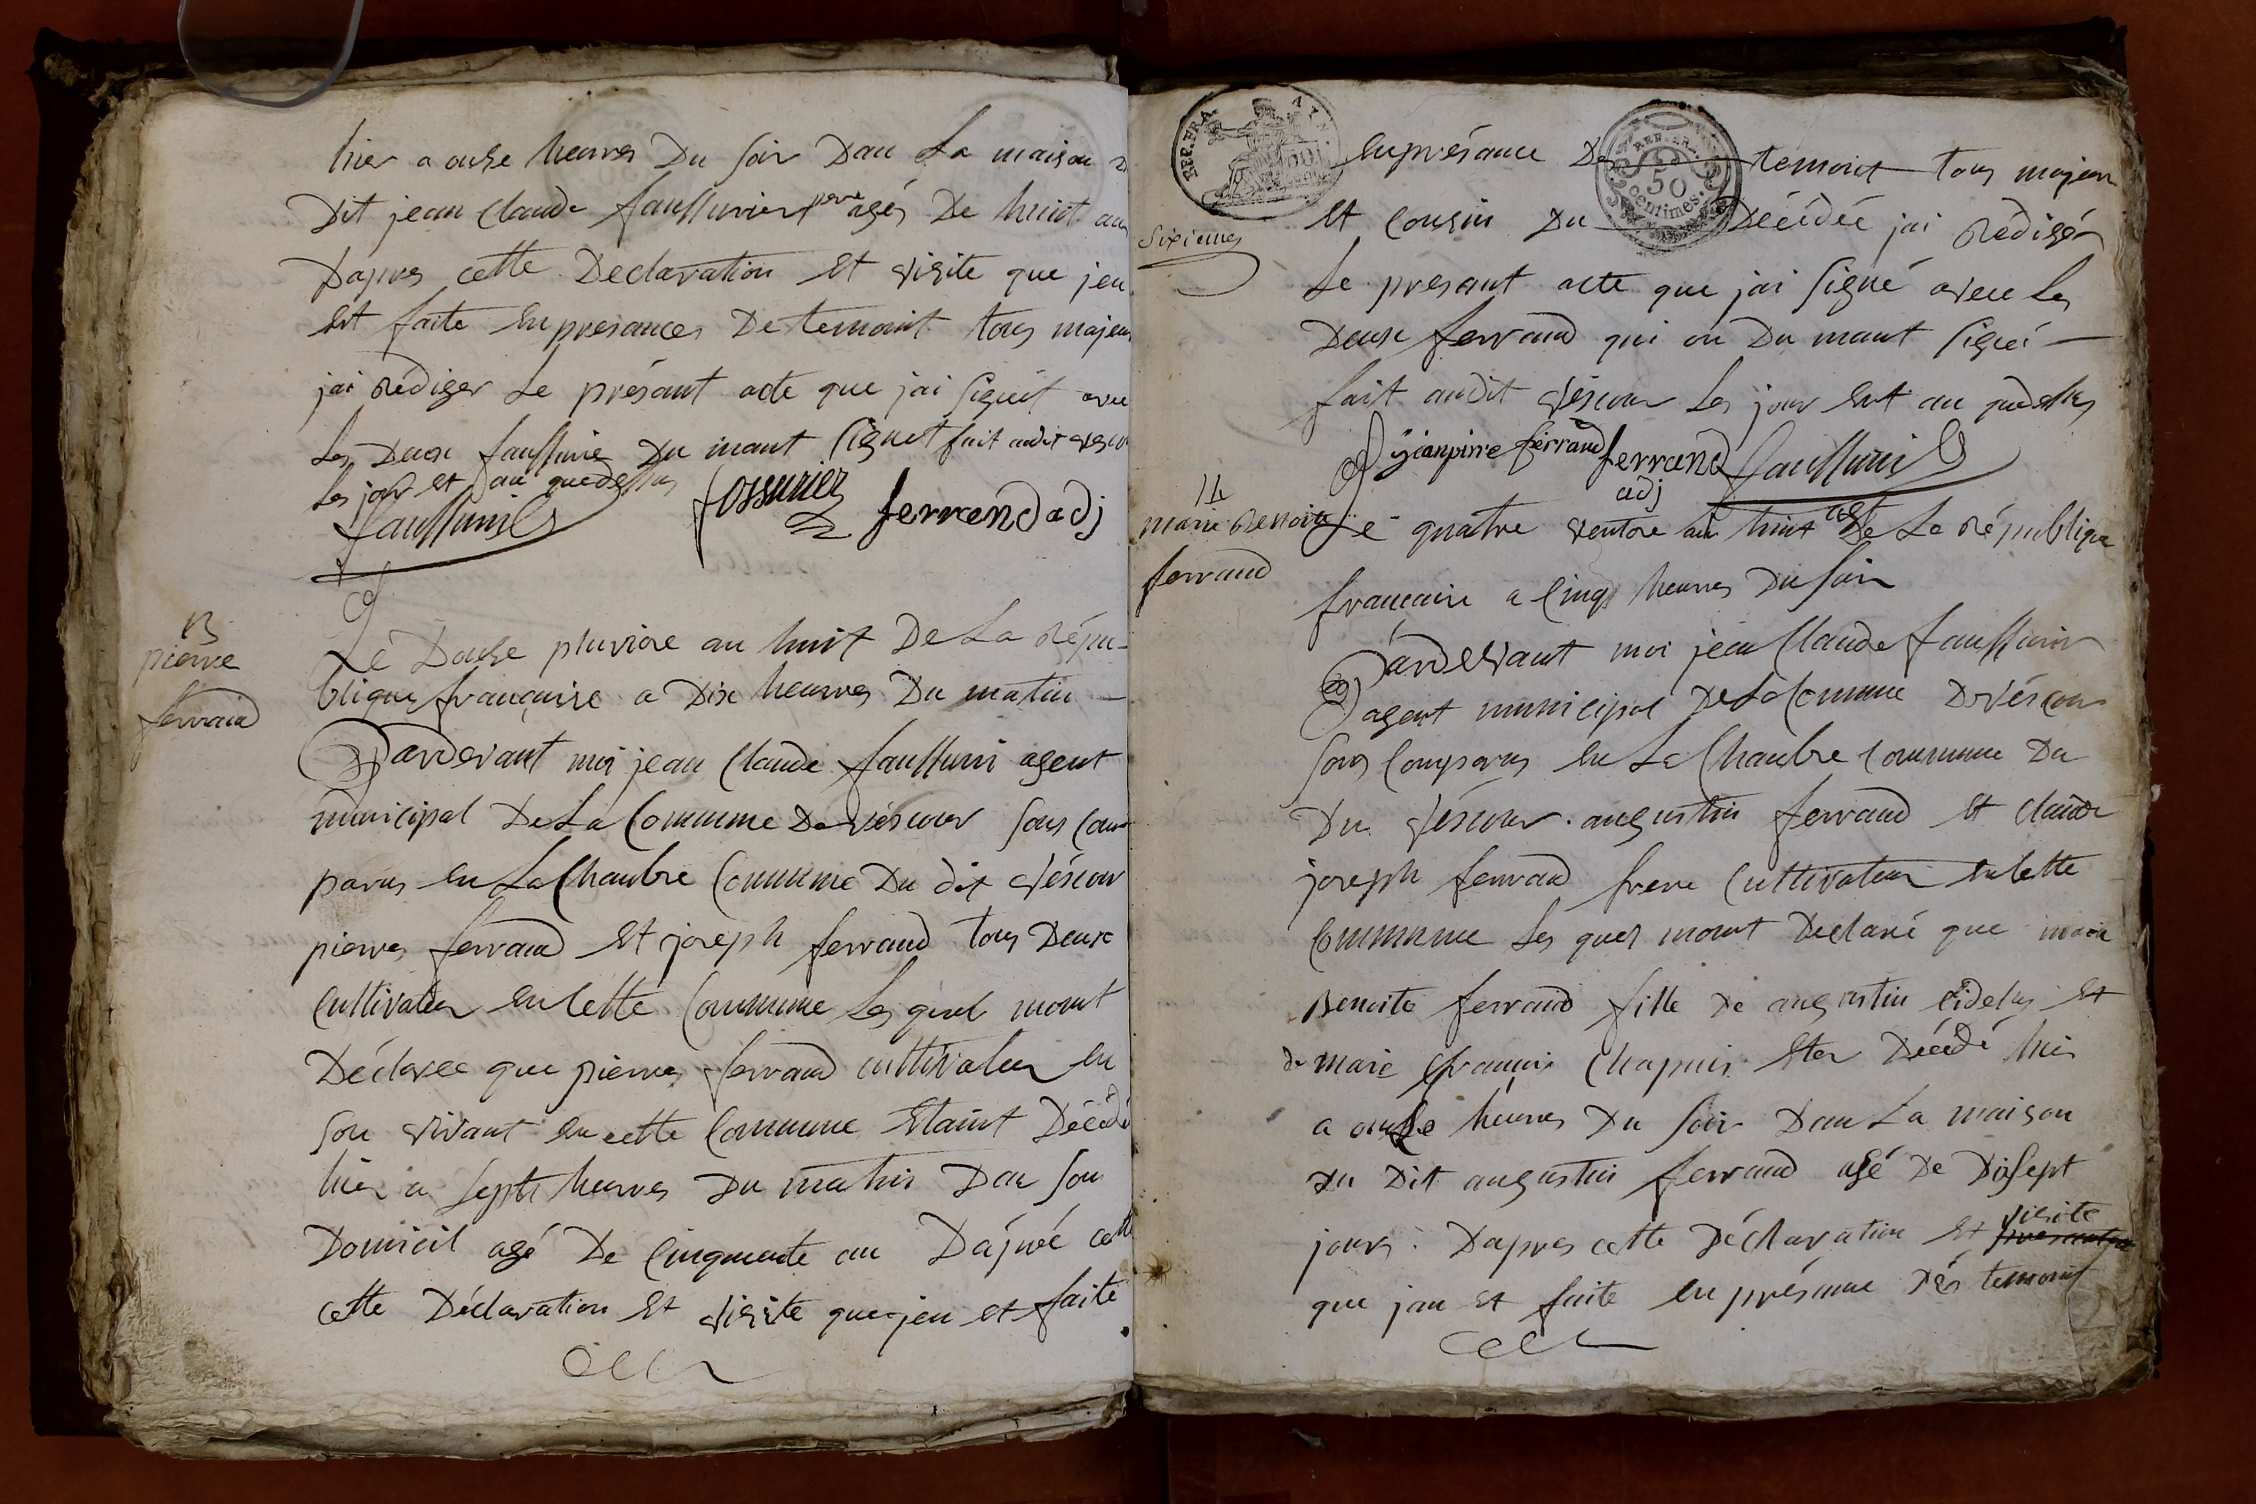 hier a onse heures Du soir Dan La maison
Dit jean Claude faussurier pere agés De huit an
Dapres cette Declaration et visite que jen
est faite en presances De temoint tous majeur
jai rédiger Le présant acte que jai signét avec
Les Deux faussurie Du mant signet fait audit vescour
Les jour et an quedessus
faussurié
fossurier
ferrend adj
13
pierre
ferraud
Le Douse pluviose an huit De La répu-
blique française a Dix heures Du matin
Pardevant moi jean Claude faussurié agent
municipal De La Commune De véscour sous com
parus en La Chambre Commune Du dit véscour
pierres ferraud et joseph ferraud tous Deux
Cultivateur en Cette Commune Les quel mont
Déclarée que pierres ferraud cultivateur en
son vivant en cette Commune Etaint Décédé
hier a sept heures Du matin Dan son
Domicil agé De Cinquante an Dapré cette
cette Déclaration et visite que jen et faite
REP. FRA. AIN
REP. FRA.
50
centimes.
enprésance De temoint tous majeur
et Cousin Du Décédée jai rédigér
sixiemes
Le presant acte que jai signé avec Les
Deux ferraud qui on Du mant signé
fait audit véscour Les jour et an quedessus
jeanpirre ferraud
ferrand
adj
faussurié
14
marie Benoite
ferraud
Le quatre ventose an huit De La républiqe
française a Cinq heures Du soir
Pardevant moi jean Claude faussurier
agent municipal De La Commune De véscour
sous Comparus en La Chambre Commune Du
Du véscour. augustin ferraud et claude
joseph ferraud frere Cultivateur en Cette
Commune Les quel mont Declaré que marie
Benoite ferraud fille De augustin Cidessus et
de marie francoise Chapuis eter Décédé hier
a onse heures Du soir Dan La maison
Du Dit augustin ferraud agé De Disept
jours. Dapres cette Déclaration et visite
que jan et faite en présance Dés temoint